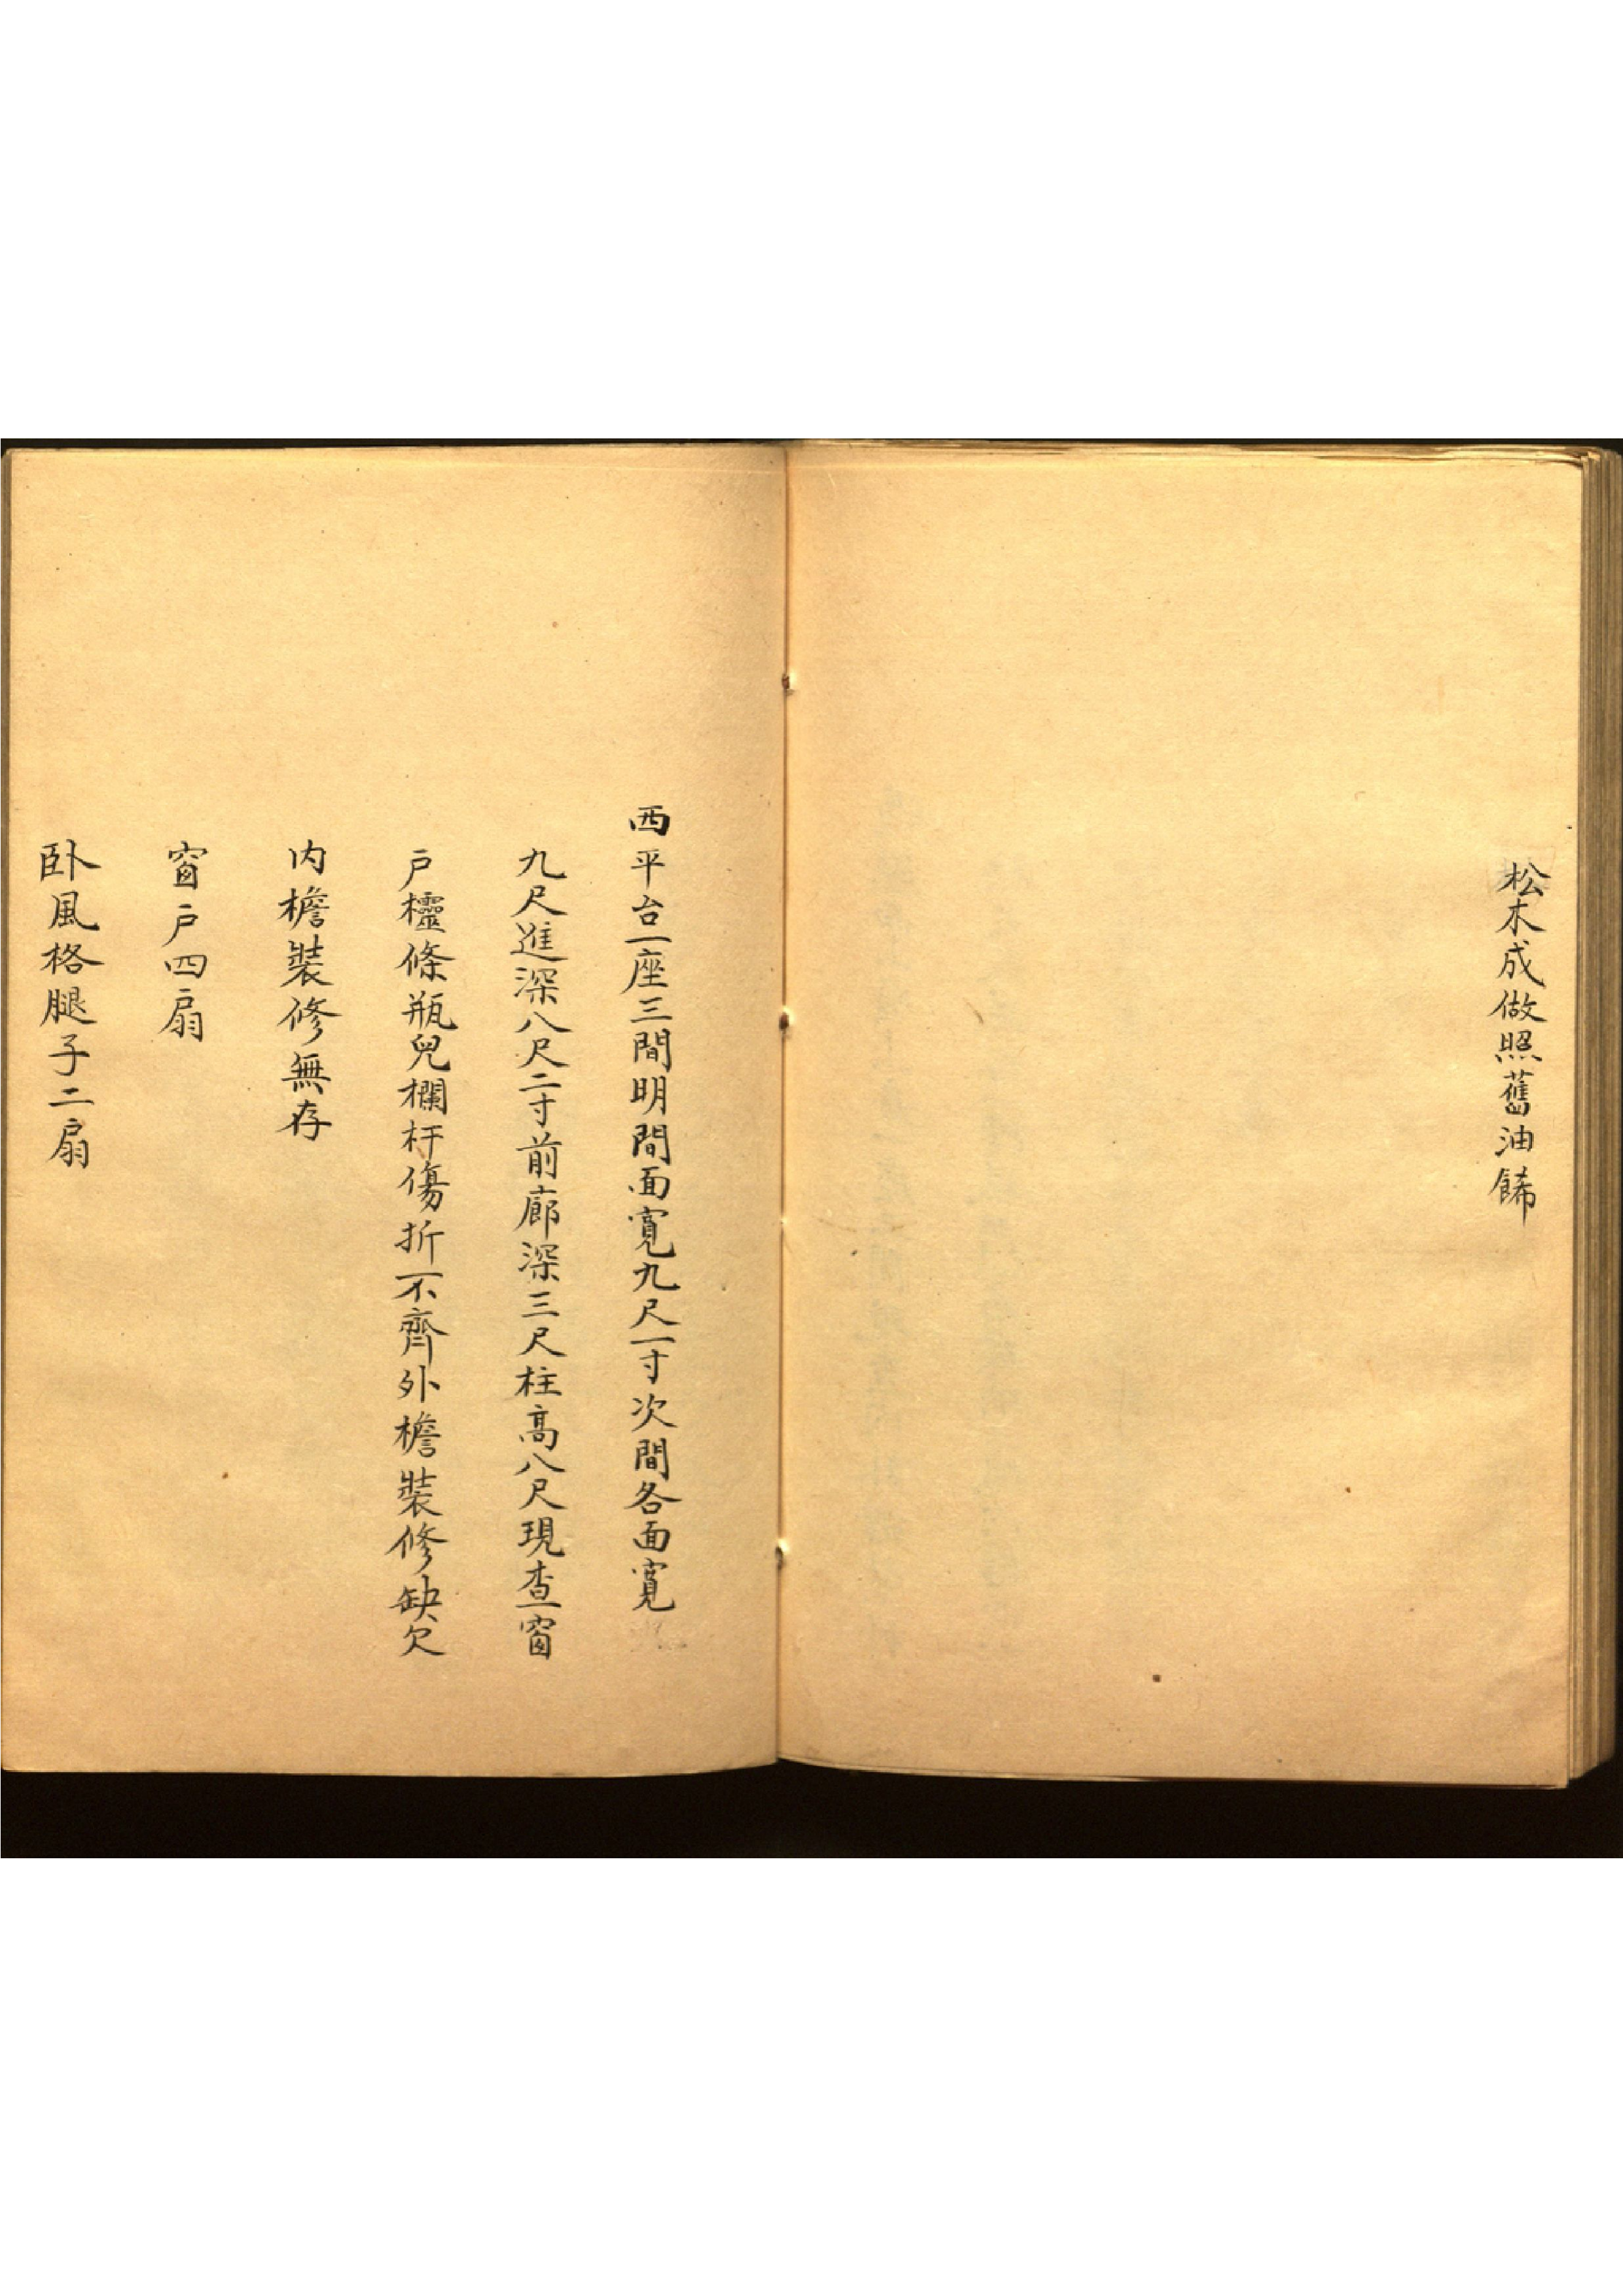 松木成做照舊油餙
西平台一座三間明間面寬九尺一寸次間各面寬
九尺進深八尺二寸前廊深三尺柱高八尺現查窗
戶櫺條瓶兒欄杆傷折不齊外檐裝修缺欠
内檐裝修無存
窗戶四扇
卧風格腿子二扇